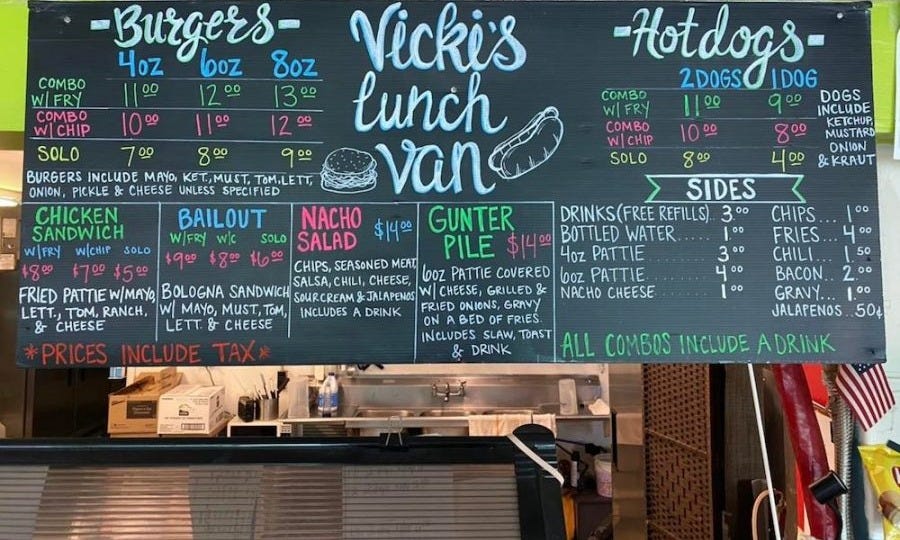 -Burgers-
4oz 6oz 8oz
COMBO W/FRY 11⁰⁰ 12⁰⁰ 13⁰⁰
COMBO W/CHIP 10⁰⁰ 11⁰⁰ 12⁰⁰
SOLO 7⁰⁰ 8⁰⁰ 9⁰⁰
BURGERS INCLUDE MAYO, KET, MUST, TOM, LETT,
ONION, PICKLE & CHEESE UNLESS SPECIFIED
Vicki's
lunch
van
-Hotdogs-
2 DOGS 1 DOG
COMBO W/FRY 11⁰⁰ 9⁰⁰
COMBO W/CHIP 10⁰⁰ 8⁰⁰
SOLO 8⁰⁰ 4⁰⁰
DOGS
INCLUDE
KETCHUP,
MUSTARD
ONION
& KRAUT
CHICKEN
SANDWICH
W/FRY W/CHIP SOLO
$8⁰⁰ $7⁰⁰ $5⁰⁰
FRIED PATTIE W/MAYO,
LETT., TOM, RANCH,
& CHEESE
BAILOUT
W/FRY W/C SOLO
$9⁰⁰ $8⁰⁰ $6⁰⁰
BOLOGNA SANDWICH
W/ MAYO, MUST, TOM,
LETT. & CHEESE
NACHO
SALAD $14⁰⁰
CHIPS, SEASONED MEAT,
SALSA, CHILI, CHEESE,
SOUR CREAM & JALAPENOS
INCLUDES A DRINK
GUNTER
PILE $14⁰⁰
6oz PATTIE COVERED
W/ CHEESE, GRILLED &
FRIED ONIONS, GRAVY
ON A BED OF FRIES.
INCLUDES SLAW, TOAST
& DRINK
SIDES
DRINKS (FREE REFILLS). 3⁰⁰
BOTTLED WATER....... 1⁰⁰
4oz PATTIE......... 3⁰⁰
6oz PATTIE......... 4⁰⁰
NACHO CHEESE...... 1⁰⁰
CHIPS... 1⁰⁰
FRIES... 4⁰⁰
CHILI.... 1⁵⁰
BACON.. 2⁰⁰
GRAVY... 1⁰⁰
JALAPENOS..50¢
*PRICES INCLUDE TAX*
ALL COMBOS INCLUDE A DRINK